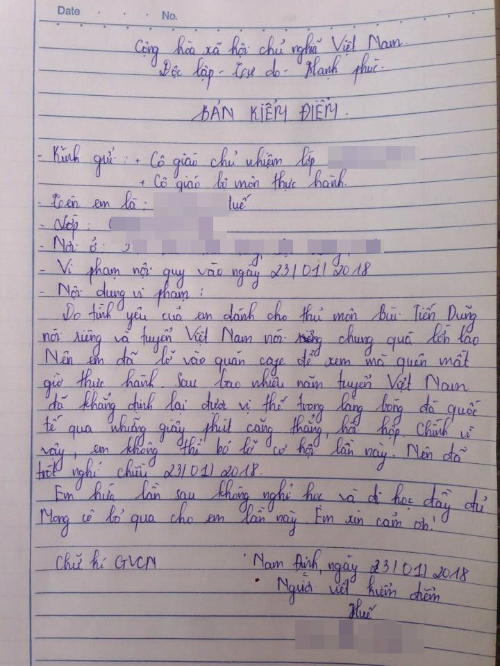 Date No.
Cộng hòa xã hội chủ nghĩa Việt Nam
Độc lập - Tự do - Hạnh phúc
BẢN KIỂM ĐIỂM
- Kính gửi : + Cô giáo chủ nhiệm lớp
+ Cô giáo bộ môn thực hành.
- Tên em là : Huế
- Lớp :
- Nơi ở :
- Vi phạm nội quy vào ngày 23/01/2018
- Nội dung vi phạm :
Do tình yêu của em dành cho thủ môn Bùi Tiến Dũng
nói riêng và tuyển Việt Nam nói chung quá lớn lao
Nên em đã lẻ vào quán cafe để xem mà quên mất
giờ thực hành. Sau bao nhiêu năm tuyển Việt Nam
đã khẳng định lại được vị thế trong làng bóng đá quốc
tế qua những giây phút căng thẳng, hồi hộp. Chính vì
vậy, em không thể bỏ lỡ cơ hội lần này. Nên đã
trót nghỉ chiều 23/01/2018.
Em hứa lần sau không nghỉ học và đi học đầy đủ
Mong cô bỏ qua cho em lần này. Em xin cảm ơn!
Chữ kí GVCN Nam Định, ngày 23/01/2018
Người viết kiểm điểm
Huế